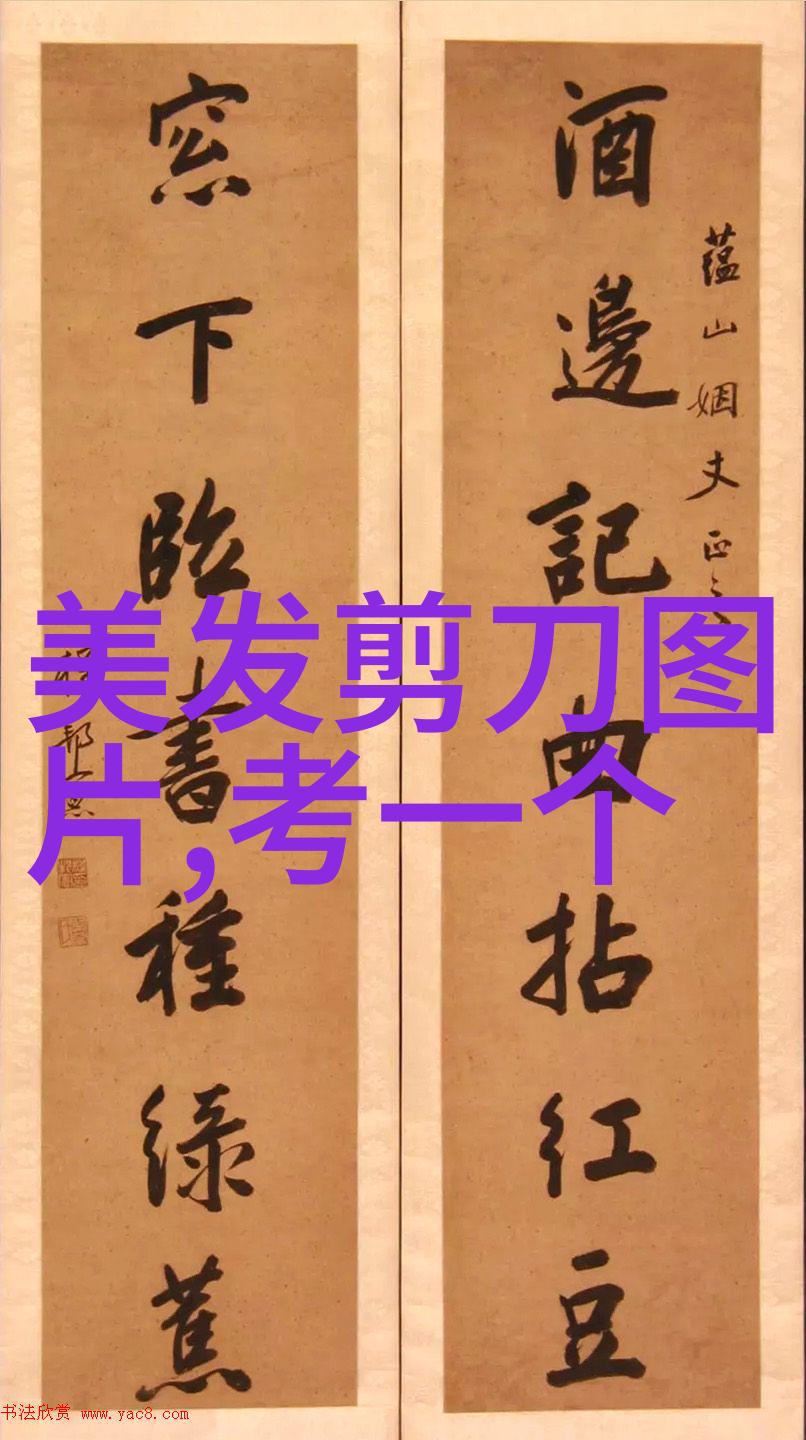 酒邊記曲拈紅豆
蕴山姻丈正之
窓下臨書種綠蕉
美发剪刀图
片,考一个
书法欣赏 www.yac8.com